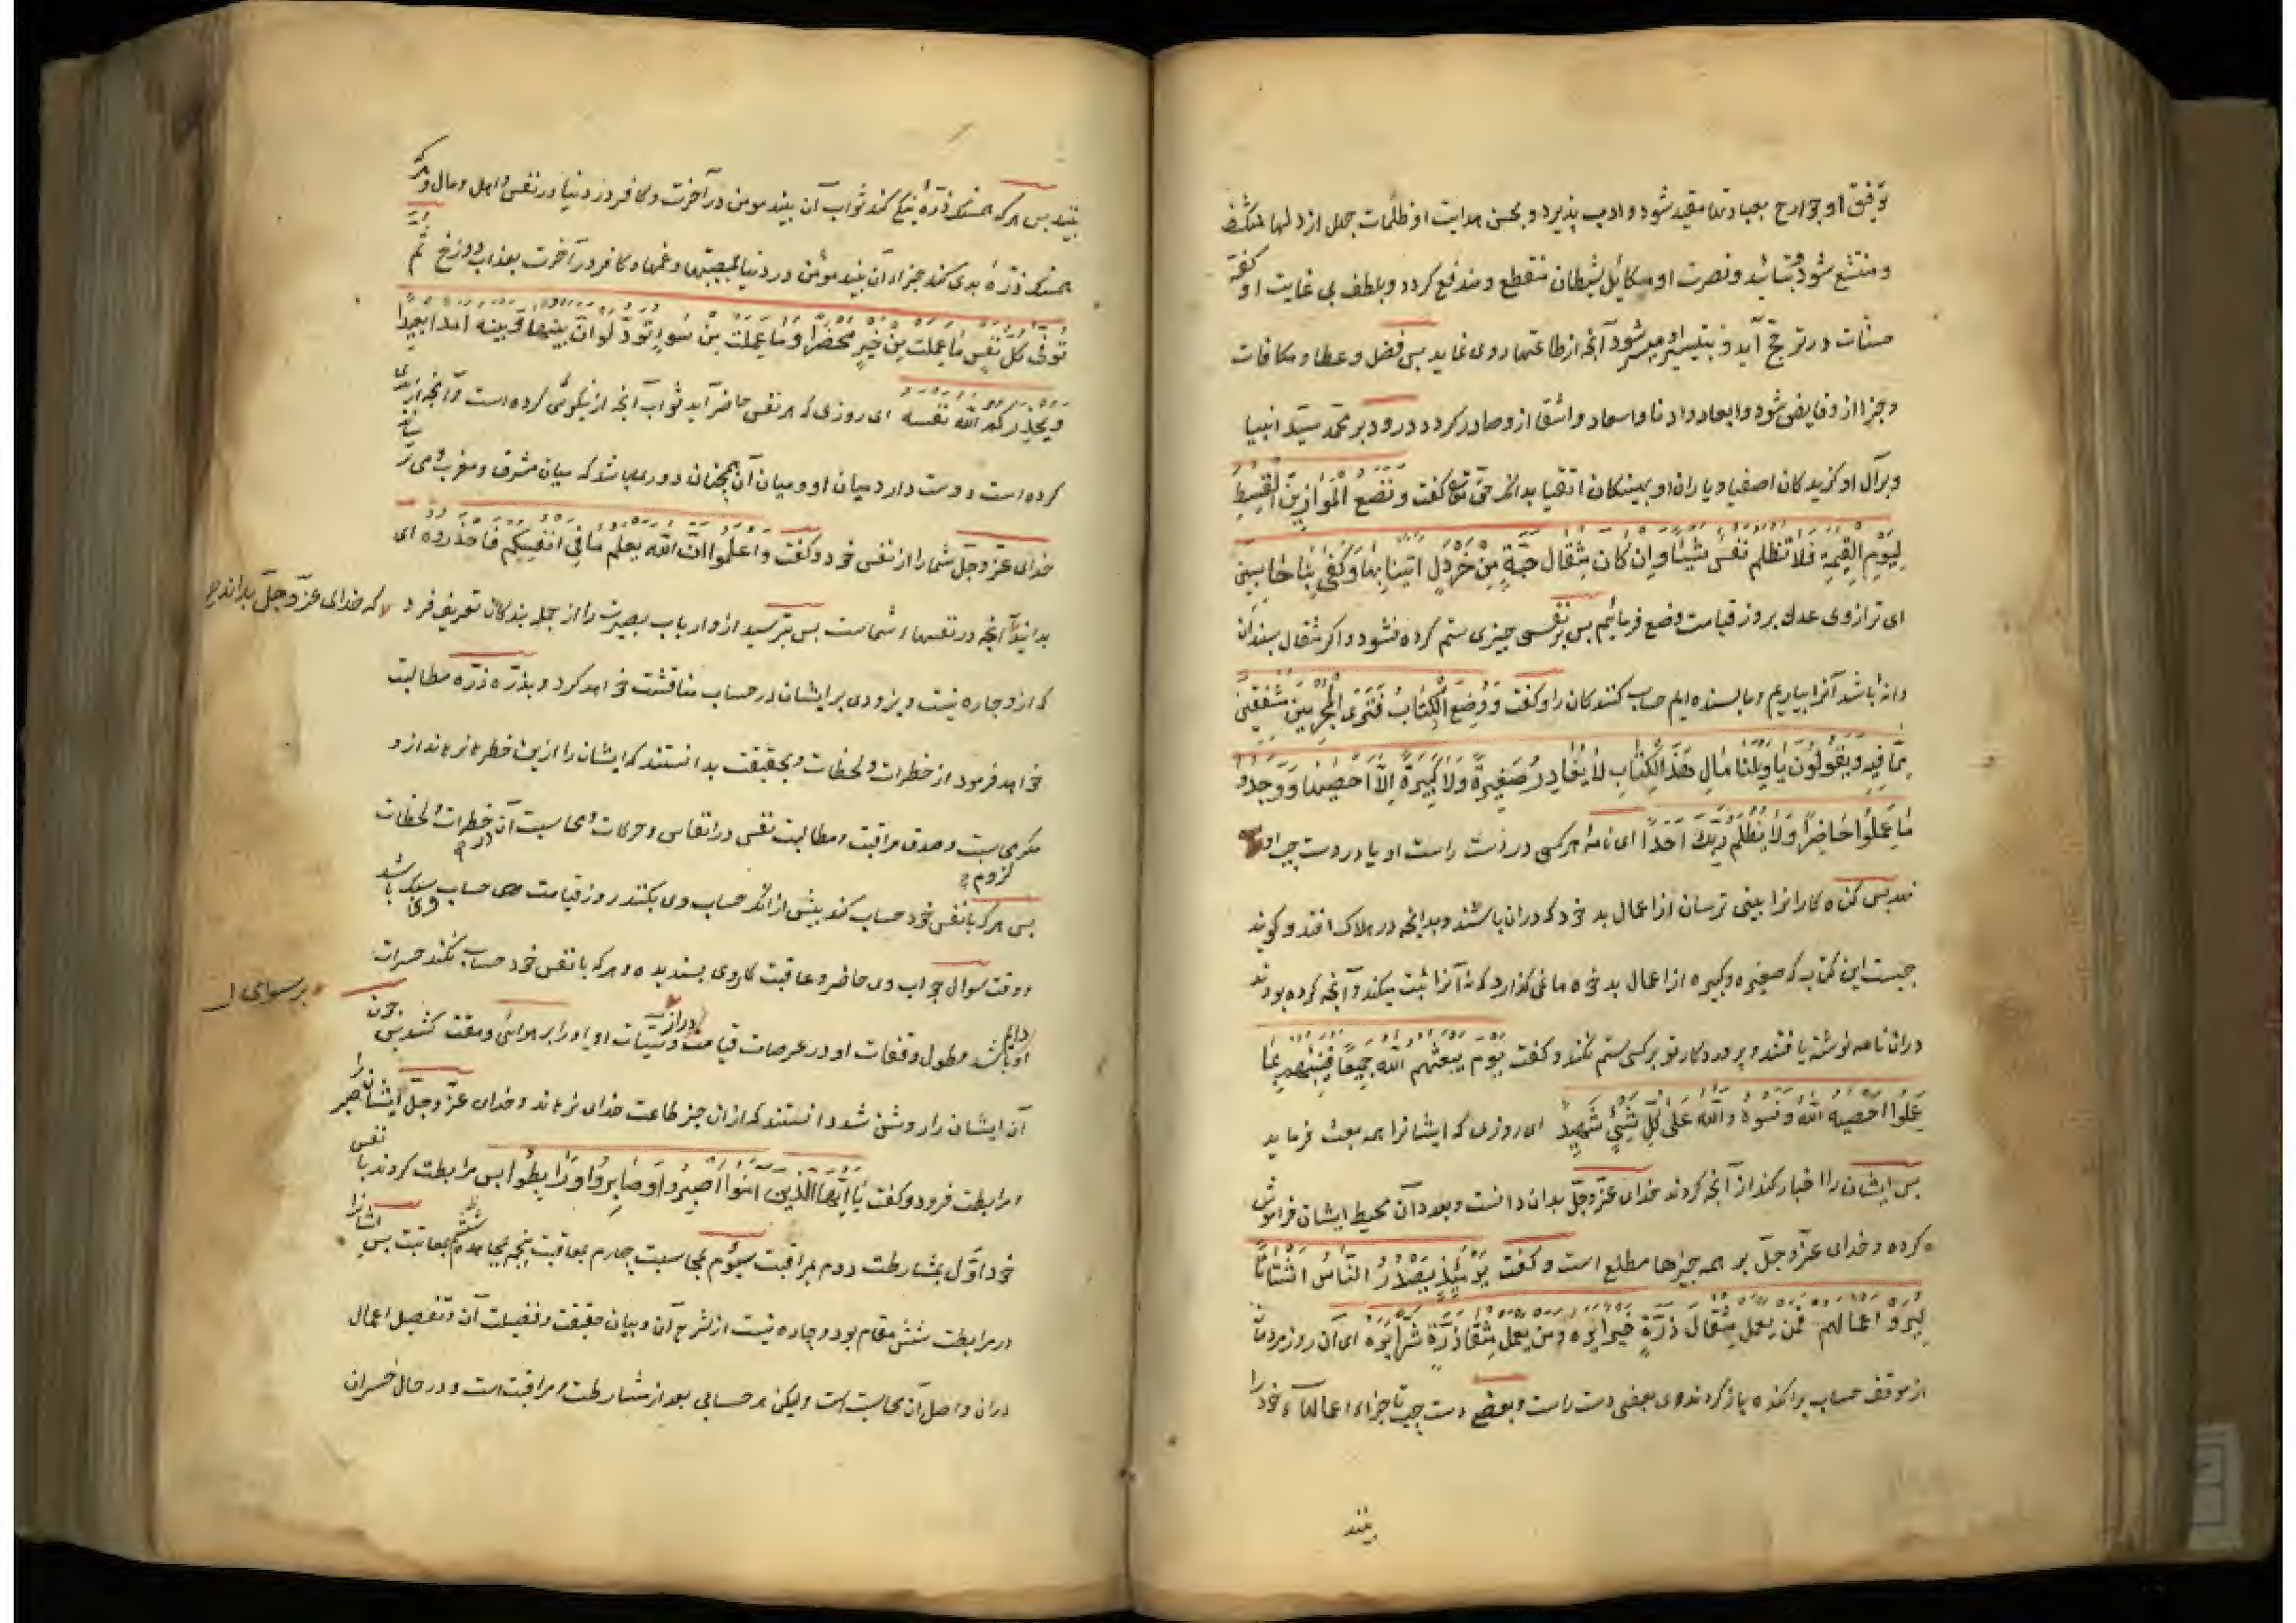 توفیق او جوارح بعبادتها مقید شود و ادب پذیرد و بحسن هدایت او ظلمات جهل از دلها منکشف
و منقشع شود و بتائید و نصرت او مکائد شیطان منقطع و مندفع کردد و بلطف بی غایت او کفهٔ
حسنات در ترجح آید و بتیسیر او میسر شود آنچه از طاعتها روی نماید بس فضل و عطا و مکافات
و جزا از و فایض شود و ابعاد و ادنا و اسعاد و اشقا از و صادر کردد و درود بر محمد سید انبیا
و بر آل او کزیدکان اصفیا و یاران او بیشکان اتقیا بدانکه حق تع کفت و نضع الموازین القسط
لیوم القیمة فلا تظلم نفس شیئا و ان کان مثقال حبة من خردل اتینا بها و کفی بنا حاسبین
ای ترازوی عدل بروز قیامت وضع فرمائیم بس بر نفسی چیزی ستم کرده نشود و اکر مثقال سبندان
دانه باشد آنرا بیاریم و ما بسنده ایم حساب کنندکان را و کفت و وضع الکتاب فتری المجرمین مشفقین
مما فیه و یقولون یا ویلتنا مال هذا الکتاب لا یغادر صغیرة ولا کبیرة الا احصیها و وجدوا
ما عملوا حاضرا ولا یظلم ربک احدا ای نامهٔ هر کسی در دست راست او یا در دست چپ او
نهد بس کناه کارانرا بینی ترسان از اعمال بد خود که دران باشند و بدانچه در هلاک افتد و کویند
چیست این کتاب که صغیره و کبیره از اعمال بد خوه ما نمی کذارد که نه آنرا ثبت میکند و آنچه کرده بودند
دران نامه نوشته یافتند و پروردکار تو بر کسی ستم نکند و کفت یوم یبعثهم الله جمیعا فینبئهم بما
عملوا احصیه الله و نسوه والله علی کل شیئ شهید ای روزی که ایشانرا همه بعث فرماید
بس ایشان را اخبار کند از آنچه کردند خدای عز و جل بدان دانست و بعدد آن محیط ایشان فراموش
کرده و خدای عز و جل بر همه چیزها مطلع است و کفت یومئذ یصدر الناس اشتاتا
لیروا اعمالهم فمن یعمل مثقال ذرة خیرا یره و من یعمل مثقال ذرة شرا یره ای آن روز مردمان
از موقف حساب براکنده باز کردند وی بعضی دست راست و بعضی دست چپ تا جزاء اعمالهاء خود را
بینند
بینند بس هر که همسنک ذرهٔ نیکی کند ثواب آن بیند مومن در آخرت و کافر در دنیا در نفس و اهل و مال و هر که
همسنک ذرهٔ بدی کند جزاء آن بیند مؤمن در دنیا بمصیبتها و غمها و کافر در آخرت بعذاب دوزخ ثم
توفی کل نفس ما عملت من خیر محضرا و ما عملت من سوء تود لو ان بینها و بینه امدا بعیدا
و یحذرکم الله نفسه ای روزی که هر نفس حاضر آید ثواب آنچه از نیکوئی کرده است و آنچه از بدی
کرده است دوست دارد میان او و میان آن همچنان دوری باشد که میان مشرق و مغرب و می ترساند
خدای عز و جل شما را از نفس خود و کفت واعلموا ان الله یعلم ما فی انفسکم فاحذروه ای
بدانید آنچه در نفسهاء شماست بس بترسید ازو ارباب بصیرت را از جمله بندکان تعریف فرمود که خدای عز و جل بداند
که ازو چاره نیست و بزودی بر ایشان در حساب مناقشت خواهد کرد و بذره ذره مطالبت
خواهد فرمود از خطرات و لحظات و بحقیقت بدانستند که ایشان را ازین خطر نرهاند ازو
مکر محاسبت و صدق مراقبت و مطالبت نفس در انفاس و حرکات و محاسبت آن در خطرات و لحظات
بس هر که با نفس خود حساب کند بیش از انکه حساب وی بکنند روز قیامت حساب وی سبک باشد
و وقت سوال جواب وی حاضر و عاقبت کار وی بسندیده و هر که با نفس خود حساب نکند حسرات
او دایم باشد و طول وقفات او در عرصات قیامت دراز و سیئات او او را بر رسوای و مقت کشد بس چون
آن ایشان را روشن شد دانستند که از ان جز طاعت خدای نرهاند و خدای عز و جل ایشان را بصبر
و مرابطت فرمود و کفت یا ایها الذین امنوا اصبروا و صابروا و رابطوا بس مرابطت کردند با نفس
خود اول بمشارطت دوم بمراقبت سیوم بمحاسبت چهارم بمعاقبت پنجم بمجاهدت ششم بمعاتبت بس ایشانرا
در مرابطت شش مقام بود و چاره نیست از شرح آن و بیان حقیقت و فضیلت آن و تفصیل اعمال
دران و اصل آن محاسبت است و لیکن هر حسابی بعد از مشارطت و مراقبت است و در حال خسران